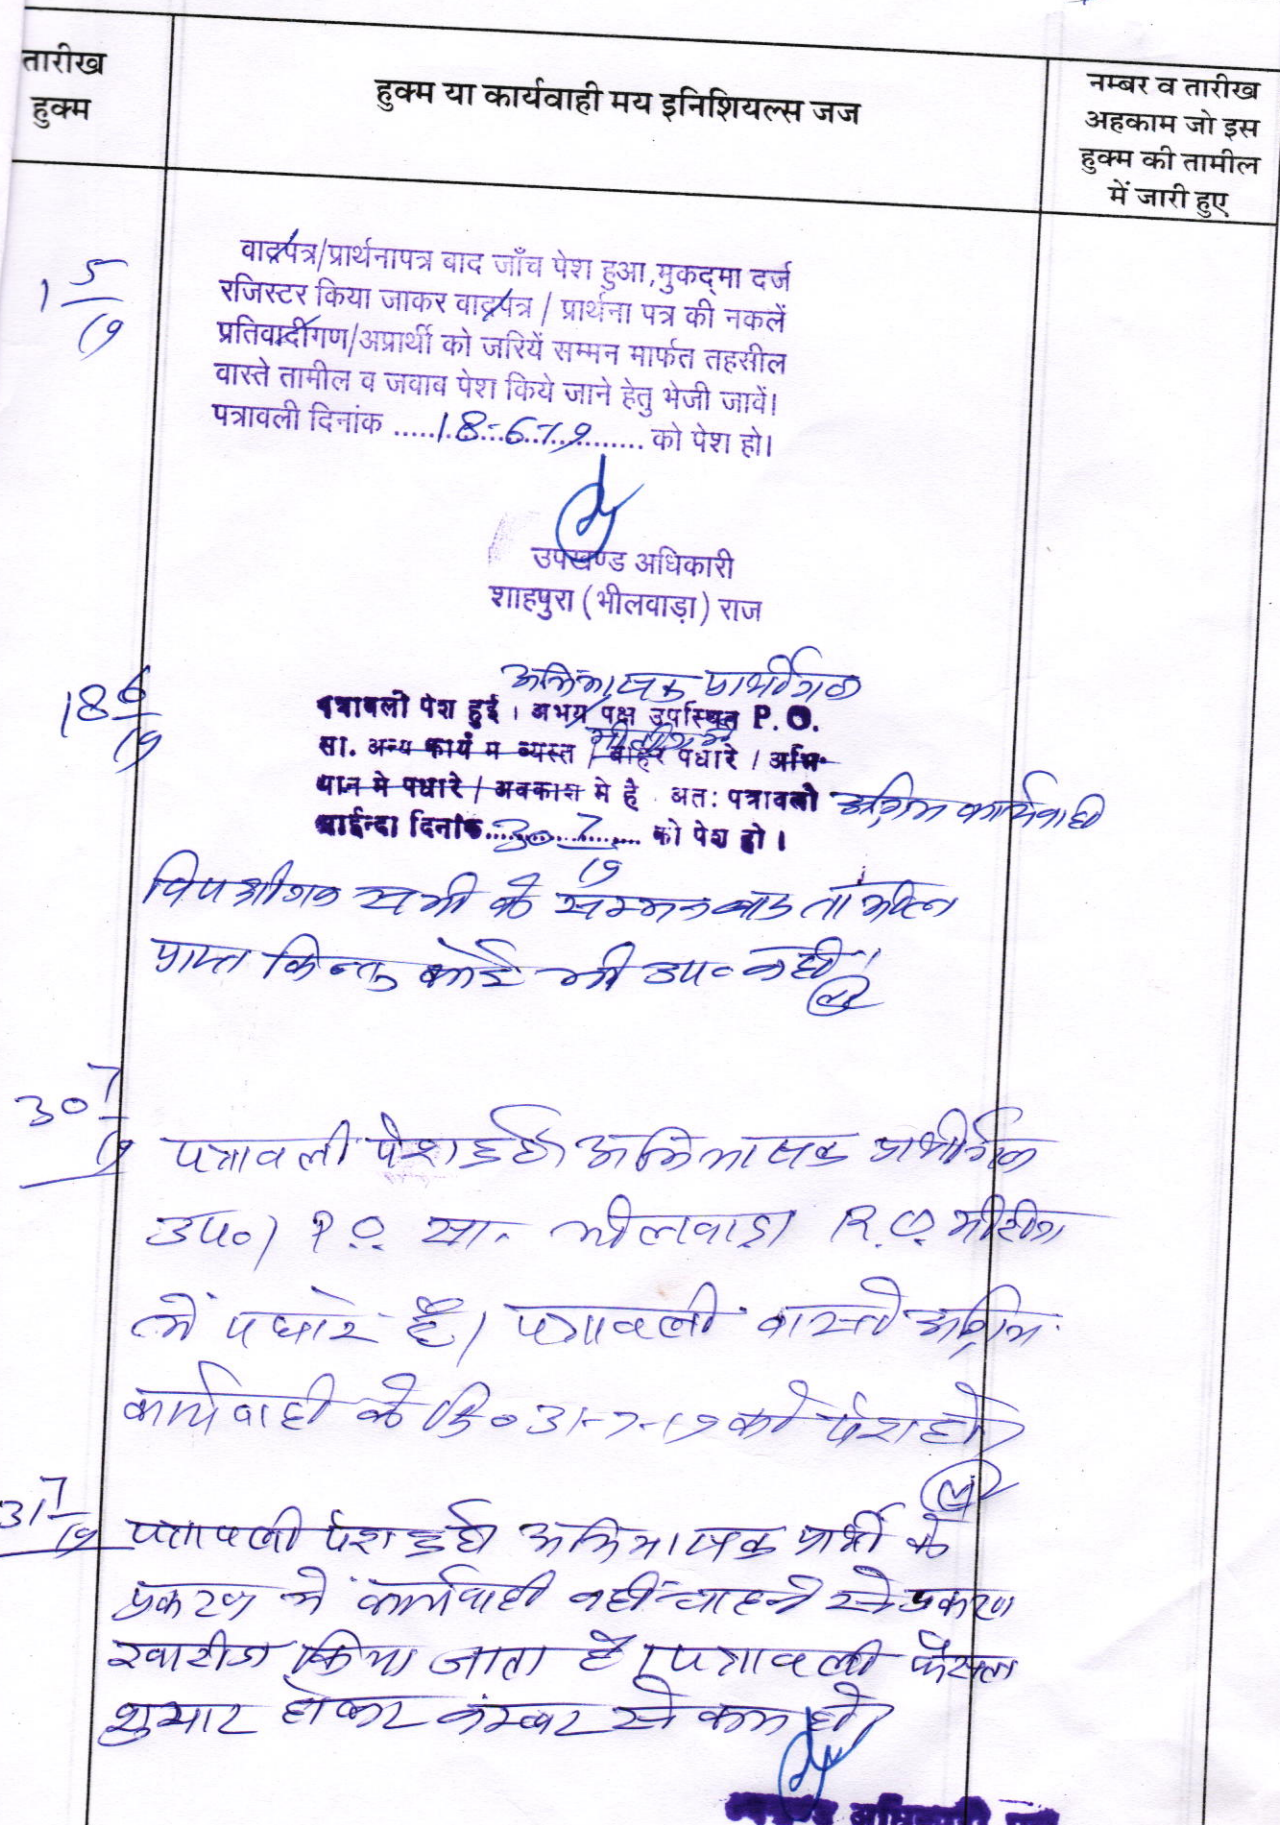 तारीख
हुक्म
हुक्म या कार्यवाही मय इनिशियल्स जज
नम्बर व तारीख
अहकाम जो इस
हुक्म की तामील
में जारी हुए
1 5/19
वादपत्र/प्रार्थनापत्र बाद जाँच पेश हुआ,मुकद्मा दर्ज
रजिस्टर किया जाकर वादपत्र / प्रार्थना पत्र की नकलें
प्रतिवादीगण/अप्रार्थी को जरियें सम्मन मार्फत तहसील
वास्ते तामील व जवाब पेश किये जाने हेतु भेजी जावें।
पत्रावली दिनांक .....18-6-19......... को पेश हो।
उपखण्ड अधिकारी
शाहपुरा (भीलवाड़ा) राज
18 6/19
अभिभाषक प्रार्थीगण
पत्रावली पेश हुई । अभय पक्ष उपस्थित P.O.
मीटींग में
सा. अन्य कार्य म व्यस्त / बाहर पधारे / अभि-
यान मे पधारे / अवकाश मे है अतः पत्रावली अग्रिम कार्यवाही
आईन्दा दिनांक......30 7/19...... को पेश हो ।
विपक्षीगण सभी के सम्मन बाद तामिल
प्राप्त किन्तु कोई भी उप० नहीं।
30 7/19
पत्रावली पेश हुई। अभिभाषक प्रार्थीगण
उप०। P.O. सा. भीलवाड़ा R.O. मीटींग
में पधारे है। पत्रावली वास्ते अग्रिम
कार्यवाही के दि० 31-7-19 को पेश हो।
31 7/19
पत्रावली पेश हुई। अभिभाषक प्रार्थी के
प्रकरण में कार्यवाही नहीं चाहने से प्रकरण
खारीज किया जाता है। पत्रावली फैसल
शुमार होकर नम्बर से कम हो।
उपखण्ड अधिकारी